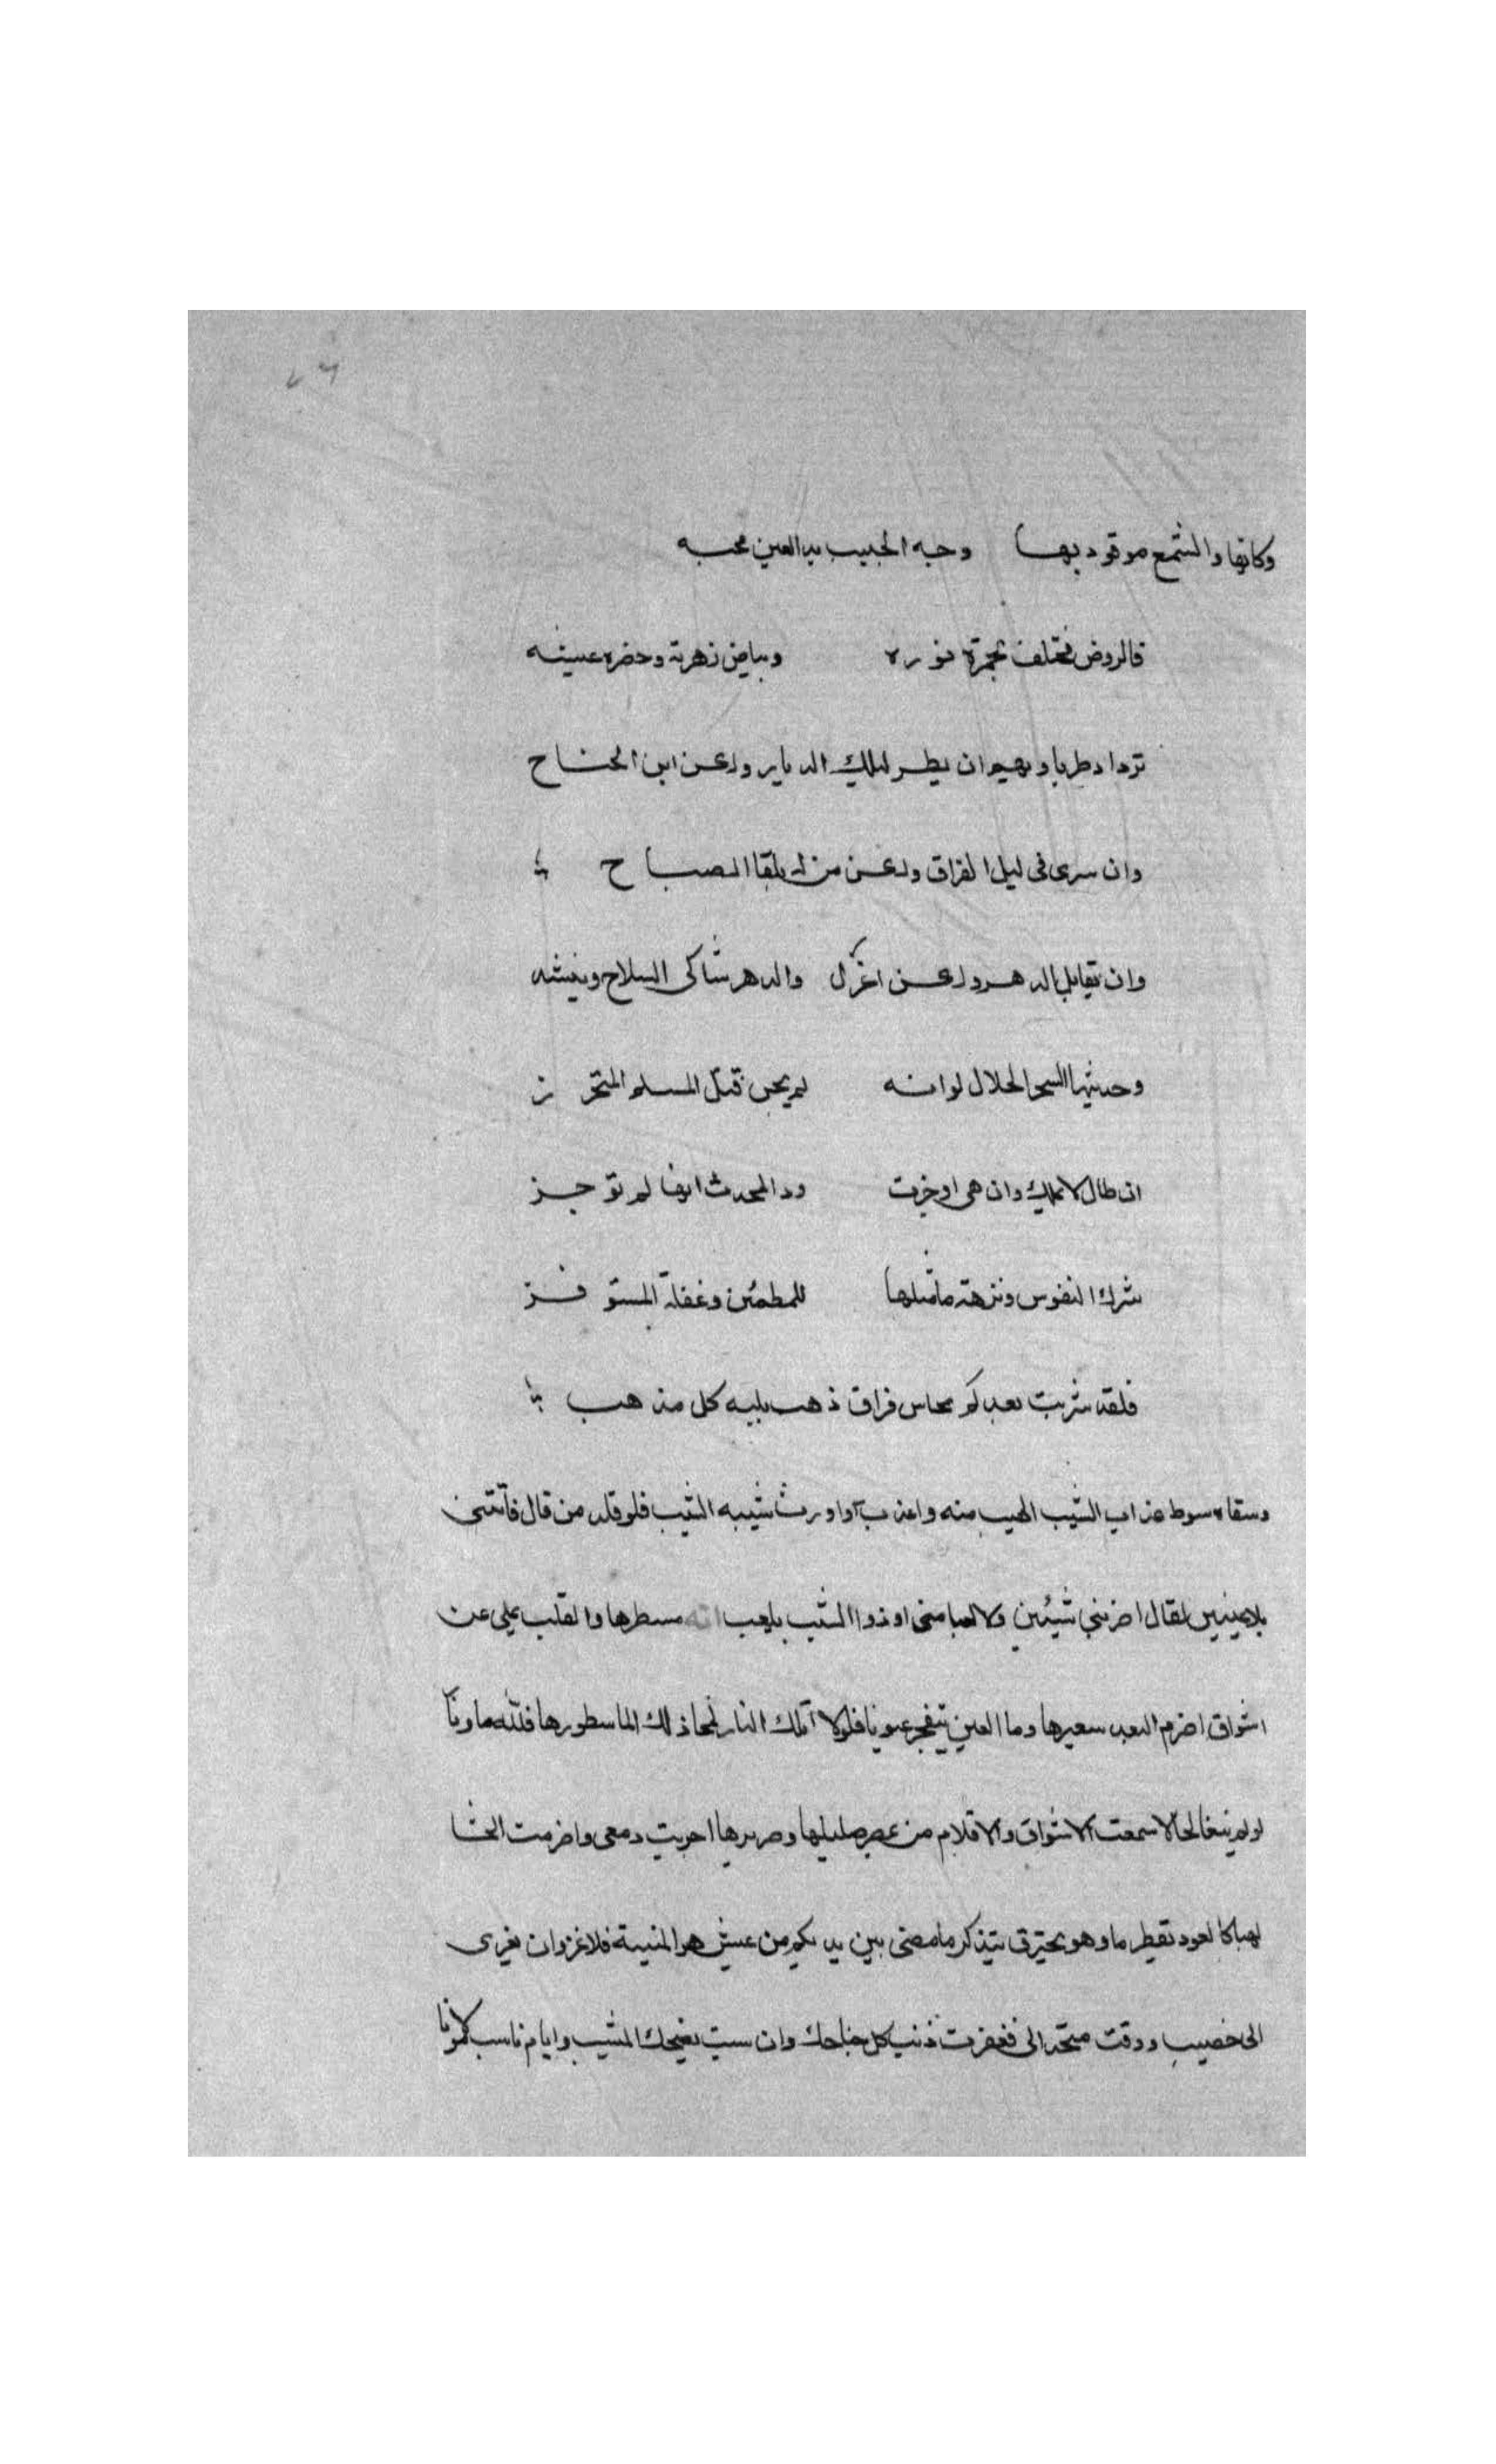 ٢٦
وكانها والشمع موقود بها وجه الحبيب بدا لعين محبه
فالروض مختلف بحمرة نوره وبياض زهرته وخضره عسبه
تزداد طربا ويهيم ان يطر لتلك الديار ولاعن اين الجناح
وان سرى فى ليل الفراق ولاعن من له بلقا الصباح
وان تقابل الدهر ولاعن اعزل والدهر شاكى السلاح وينشد
وحديثها السحر الحلال لو انه لم يجن قتل المسلم المتحرز
ان طال لا يملك وان هى اوجزت ود المحدث انها لم توجز
شرك النفوس ونزهة ما مثلها للمطمئن وغفلة المستوفز
فلقد شربت بعدكم كاس فراق ذهب بلبه كل مذهب
وسقاه سوط عذاب الشيب الهيب منه واعذب آواورث شيبه الشيب فلو قلد من قال فأتتنى
بلا عينين لقال اخرتنى شيئين ولا لعبا منى اوذوا الشيب يلعب مسطرها والقلب يملى عن
اشواق اضرم البعد سعيرها وما العين يتفجر عيونا فلولا آملك النار لمحا ذلك الما سطورها فلله ما ونآ
لو لم الاسمعت الاشواق والاقلام من صليلها وصريرها اجريت دمعى واضرمت الحشا
لهبا كالعود تقطر ما وهو يحترق يتذكر ما مضى بين يديكم من عيش هو المنية فلا غزوان
الى خصيب ووقت فغفرت ذنب كل جناحك وان المشيب وايام ناسب